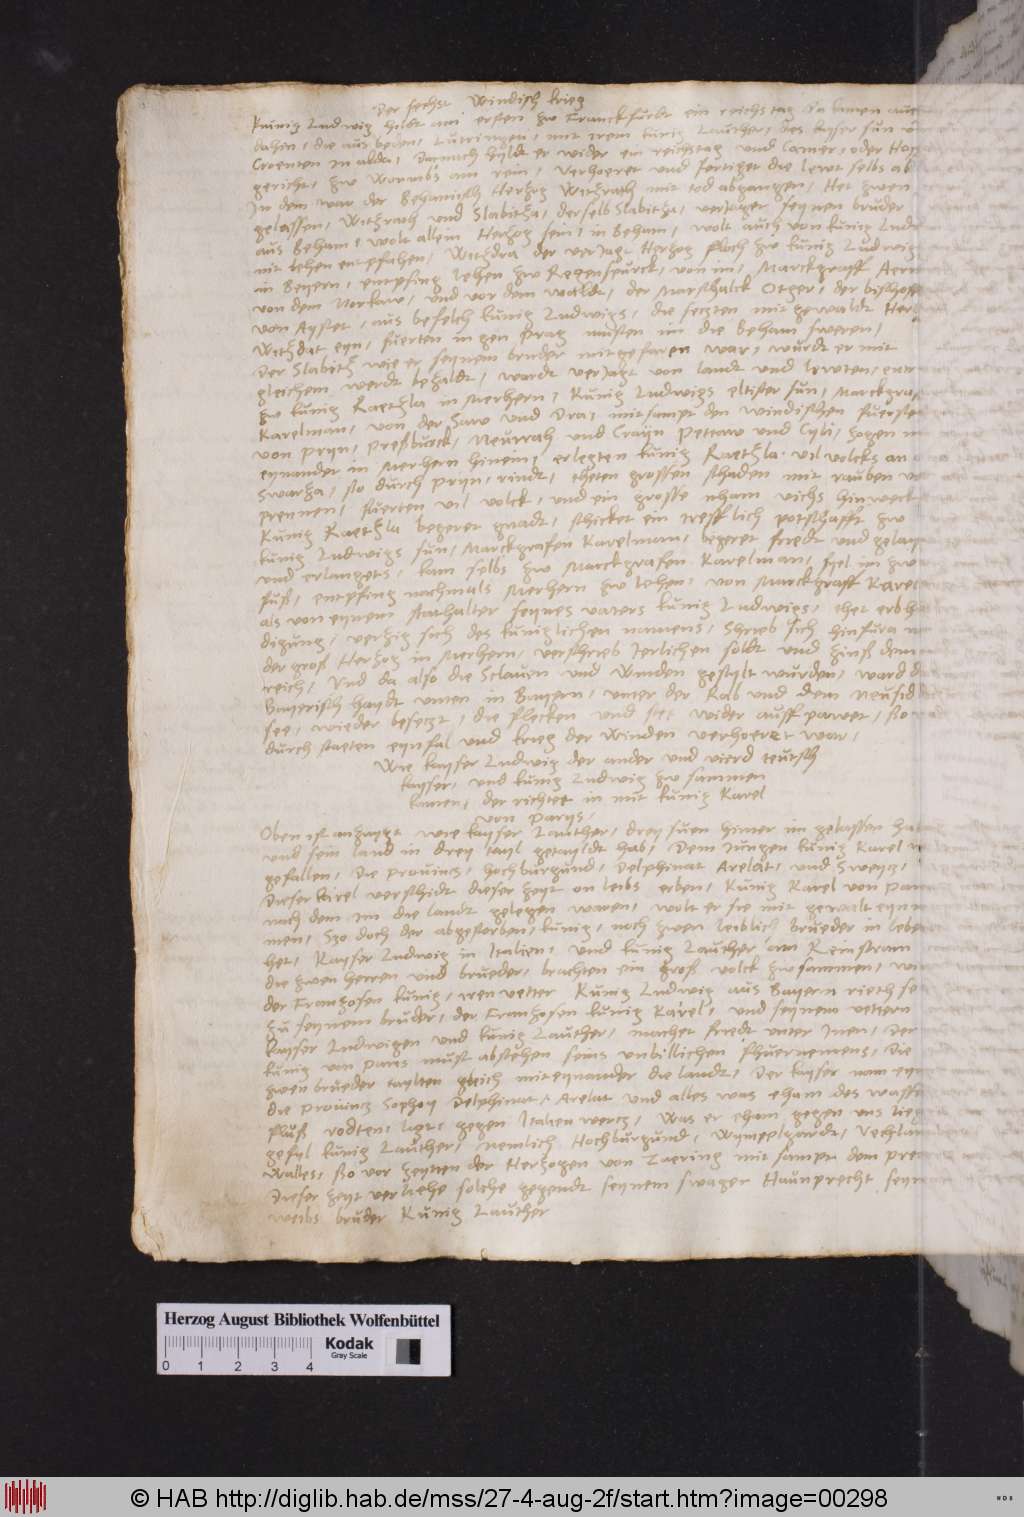 Der sechst Windisch krieg
Künig Ludwig hildt am ersten zw Franckfurdt ein reichstag da kamen auch
dahin, die aus beden, Lutringen, mit irem künig Lauther, des kayser sun
Croenten in alda, Darnach hyldt er wider ein reichstag und Camer, oder Hoff
gericht, zw Wormbs am rein, verhoeret und fertiget die lewt selbs ab
In dem war der Behamisch Herzog Withrath mit tod abgangen, Het zwen
gelassen, Withrath und Slabitha, derselb Slabitha, verjaget seynen bruder
aus Beham, wolt allein Herzog sein in Beham, wolt auch von künig Ludw
nit lehen entpfahen, Withdra der verjagt Herzog floch zw künig Ludwig
in Beyern, entpfing lehen zw Regenspurck, von im, Marckgraff Aern
von dem Norkaw, und vor dem waldt, der Marschalck Otger, der bischoff
von Aystet, aus befelch künig Ludwigs, die setzten mit gewaldt Her
Withdat eyn, fuerten in gen prag musten im die Beham sweren,
Der Slabith wie er seynem bruder mitgefaren war, wurdt er mit
gleichem werdt bezaldt, wardt verjagt von landt und lewten, entr
zw künig Raethla in Merhern, Künig Ludwigs eltister sun, Marckgraf
Karelman, von der Saw und Dra, mitsampt den windischen fuerste
von pryn, Preßburck, Neurrah und Crayn Pettaw und Cyli, zogen m
eynander in Merhern hinein, erlegten künig Raethla, vil volcks an
Swarza, so durch pryn, rindt, theten grossen schaden mit rauben u
prennen, fuerten vil volck, und ein grosse nham vichs hinweck
Künig Raethla begeret gnadt, schicket ein trefflich potschafft zw
künig Ludwigs sun, Marckgrafen Karelman, begeret friedt und gelayt
und erlangets, kam selbs zw Marckgrafen Karelman, fyel im zw
fuß, entpfing nachmals Merhern zw lehen, von Marckgraff Karel
als von eynem stathalter seynes vaters künig Ludwigs, thet erbh
digung, verzig sich des kuniglichen namens, Shrieb sich hinfura n
der groß Herzog in Merhern, verschrieb Jerlichen soldt und zinß dem
reich, Und da also die Sclaven und Winden gestylt wurden, ward d
Bayerisch haydt unten in Bayern, unter der Rab und dem Neusid
see, wieder besetzt, die flecken und stet wider auff pawet, so
durch staeten eynfal und krieg der Winden verhoeret war,
Wie kayser Ludwig der ander und vierd teutsch
kayser, und künig Ludwig zw sammen
kamen, der richtet in mit künig Karel
von Parys,
Oben ist anzaygt wie kayser Lauther, drey suen hinter im gelassen ha
und sein land in drey tayl getayldt hab, Dem Jungen künig Karel w
gefallen, Die Provincz, Hochburgund, Delphinat Arelat, und Sweycz,
Dieser Karel verschidt dieser zeyt on leibs erben, Künig Karel von Par
nach dem im die landt gelegen waren, wolt er sie mit gewalt eynn
men, Szo doch der abgestorben, kunig, noch zwen leiblich brueder in lebe
het, Kayser Ludwig in Italien, und künig Lauther am Reinstram
die zwen herren und brueder, brachten ein groß volck zwsammen, w
der Franzosen künig, iren vetter Künig Ludwig aus Bayern rieth se
zu seynem bruder, der Franzosen künig Karel, und seynem vettern
kayser Ludwigen und künig Lauther, machet friedt unter Inen, Der
künig von Paris must abstehen seins unbillichen fhuernemens, Die
zwen brueder taylten gleich miteynander die landt, Der kayser nam eyn
die provincz Sophoy Delphinat, Arelat und alles was eham des wass
fluß rodten, ligt, gegen Italien wercz, Was er eham gegen uns lieg
gefyl künig Lauther, Nemlich Hochburgund, Wympelgardt, Uechtlan
Walles, so vor zeytten der Herzogen von Zaering mit sampt dem pre
Dieser zeyt verliehe solche gegendt seynem swager Haunprecht sein
weibs bruder Künig Lauther
Herzog August Bibliothek Wolfenbüttel
0 1 2 3 4
Kodak
Gray Scale
© HAB http://diglib.hab.de/mss/27-4-aug-2f/start.htm?image=00298